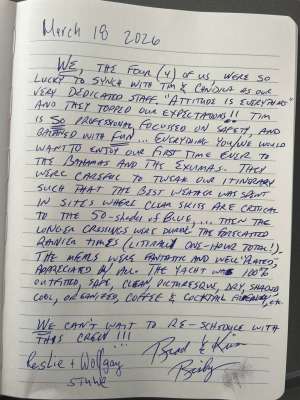 March 18 2026
WE, THE FOUR (4) OF US, WERE SO
LUCKY TO SYNCH WITH TIM & CANDICA AS OUR
VERY DEDICATED STAFF. "ATTITUDE IS EVERYTHING"
AND THEY TOPPED OUR EXPECTATIONS!! TIM
IS SO PROFESSIONAL, FOCUSSED ON SAFETY, AND
BALANCED WITH FUN ... EVERYTHING YOU'VE WOULD
WANT TO ENJOY OUR FIRST TIME EVER TO
THE BAHAMAS AND THE EXUMAS. THEY
WERE CAREFUL TO TWEAK OUR ITINERARY
SUCH THAT THE BEST WEATHER WAS SPENT
IN SITES WHERE CLEAR SKIES ARE CRITICAL
TO THE 50-SHADES OF BLUE,... THEN THE
LONGER CROSSINGS WERE DURING THE FORECASTED
RAINIER TIMES (LITERALLY ONE-HOUR TOTAL!).
THE MEALS WERE FANTASTIC AND WELL PLATED,
APPRECIATED BY ALL. THE YACHT WAS 100%
OUTFITTED, SAFE, CLEAN, PICTURESQUE, DRY, SHADED
COOL, ORGANIZED, COFFEE & COCKTAIL ETC.
WE CAN'T WAIT TO RE-SCHEDULE WITH
THIS CREW!!!
Leslie + Wolfgang
Brad & Kim